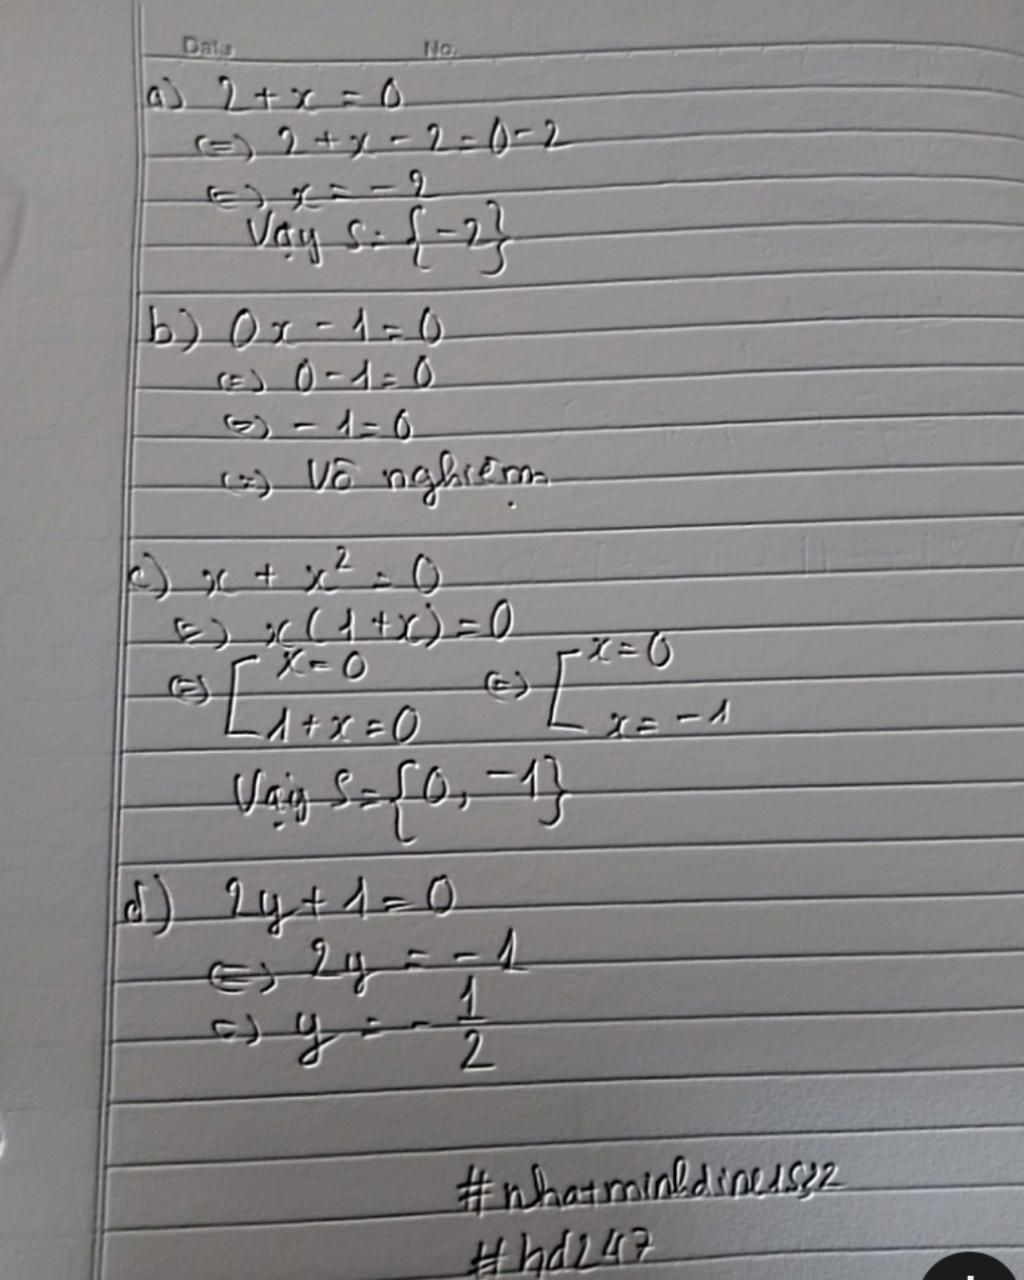 Date No.
a) 2 + x = 0
<=> 2 + x - 2 = 0 - 2
<=> x = -2
Vậy S = {-2}
b) 0x - 1 = 0
<=> 0 - 1 = 0
<=> -1 = 0
<=> Vô nghiệm
c) x + x² = 0
<=> x(1 + x) = 0
<=> [ x = 0 <=> [ x = 0
1 + x = 0 x = -1
Vậy S = {0, -1}
d) 2y + 1 = 0
<=> 2y = -1
<=> y = - 1/2
#hd247